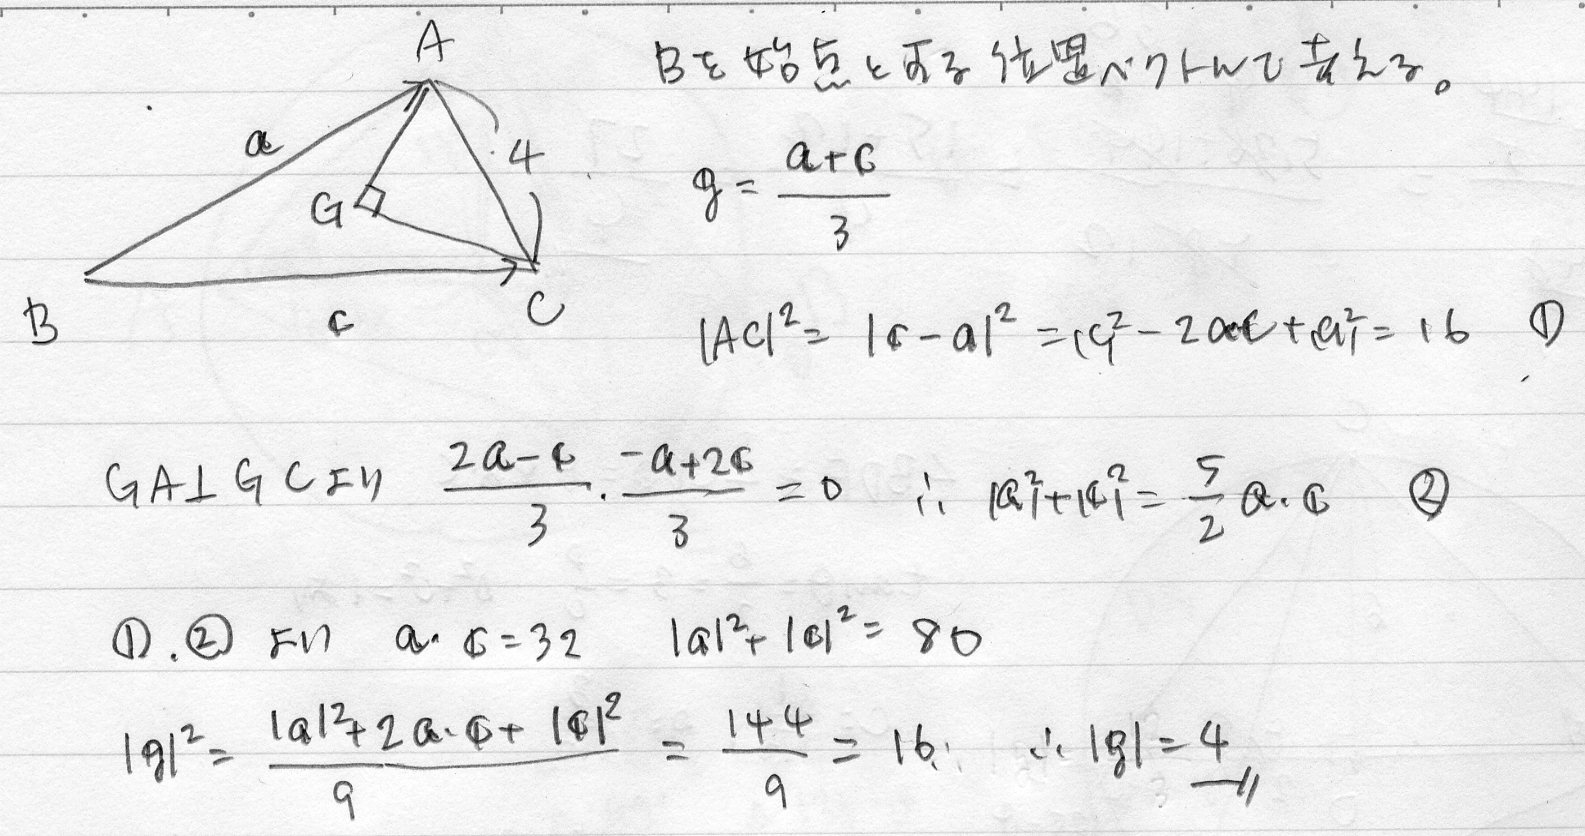 Bを始点とする位置ベクトルで考える。
A
a
4
G
B
c
C
g = (a+c)/3
|AC|² = |c-a|² = |c|² - 2a·c + |a|² = 16 ①
GA⊥GCより (2a-c)/3 · (-a+2c)/3 = 0 ∴ |a|²+|c|² = 5/2 a·c ②
①.②より a·c=32 |a|²+|c|² = 80
|g|² = (|a|²+2a·c+|c|²)/9 = 144/9 = 16 ∴ |g| = 4